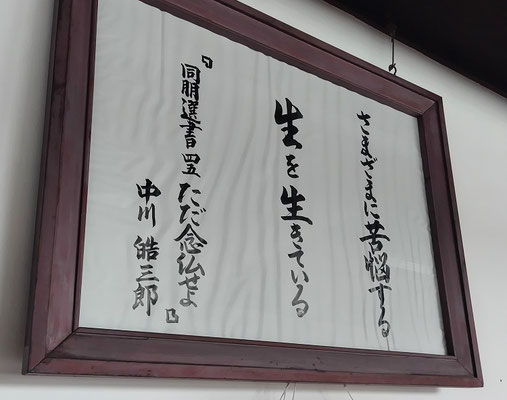 さまざまに苦悩する
生を生きている
『同朋選書四五 ただ念仏せよ』
中川皓三郎